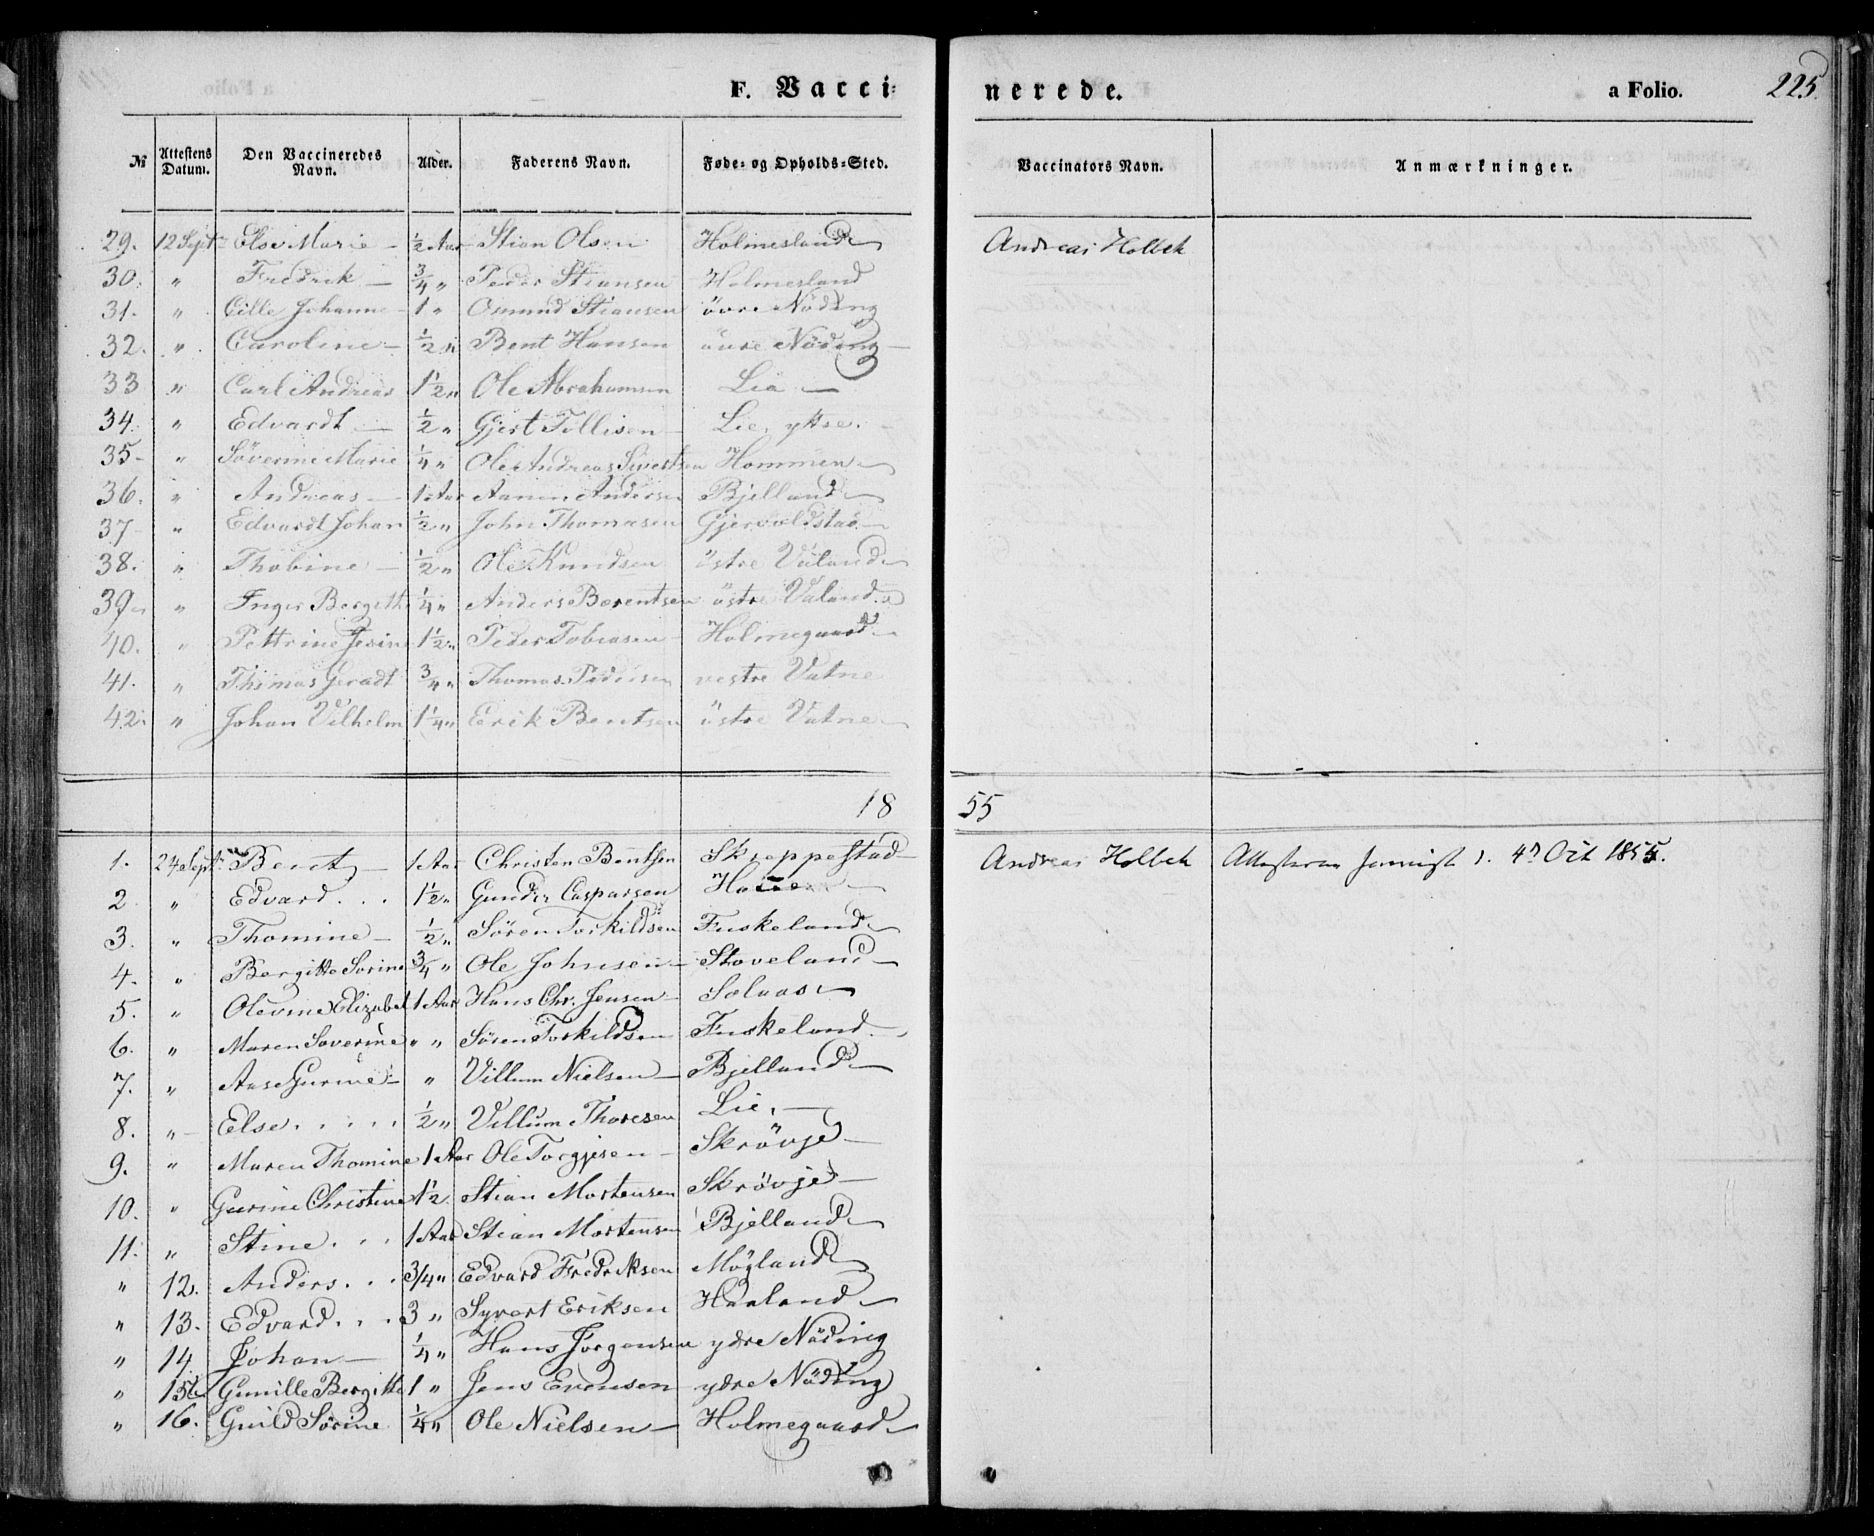 F. Vacci- nerede. a Folio. 225
№ Attestens Datum. Den Vaccineredes Navn. Alder. Faderens Navn. Føde- og Opholds-Sted. Vaccinators Navn. Anmærkninger.
29. 12 Sept Else Marie – ½ Aar Stian Olsen Holmesland Andreas Holbek
30. " Fredrik – ¾ " Peder Stiansen Holmesland
31. " Cille Johanne – 1 " Osmund Stiansen övre Nöding
32. " Caroline – ½ " Bent Hansen övre Nöding –
33 " Carl Andreas 1½ " Ole Abrahamsen Lia –
34. " Edvardt – ½ " Gjert Tellisen – Lie, yttre.
35 – " Söverine Marie ¼ " Ole Andreas Sivertsen Hommen
36. " Andreas – 1 Aar Aanen Andersen Bjelland
37 – " Edvardt Johan ½ " John Thomasen Gjervoldstad –
38. " Thobine – ½ " Ole Knudsen östre Valand
39 " Inger Bergithe ¼ " Anders Berentsen östre Valand
40. " Pettrine Jesine 1½ " Peder Tobiasen – Holmegaard
41. " Thomas Geradt ¾ " Thomas Pedersen vestre Vatne
42. " Johan Vilhelm 1¼ " Eerik Bentsen östre Vatne
18 55
1. 24 Sept. Berit – 1 Aar Christen Bentsen Skeppestad Andreas Holbek 4d Oct 1855.
2 " Edvard . . . 1½ " Gunder Casparsen
3. " Thomine – ½ " Sören Torkildsen Fuskeland
4. " Bergitte Sorine ¾ " Ole Johnsen – Stoveland
5. " Olevine Elizabet 1 Aar Hans Chr. Jensen – Solaas
6. " Maren Soverine " " Sören Torkildsen Fuskeland
7. " Aase Gurine – " Villum Nielsen – Bjelland
8. " – Else . . . . . ½ " Villum Thoresen Lie, –
9. " Maren Thomine 1 Aar Ole Torgjesen – Skrövje –
10. " Gurine Christine 1½ Stian Mortensen Skrövje –
11. " Stine . . . 1 Aar Stian Mortensen Bjelland
" 12. Anders . . . 3/4 " Edvard Fredriksen Mögland
" 13. Edvard . . . 3 " Syvert Eriksen Haaland
" 14. Johan – ¼ " Hans Jorgensen ydre Nöding
" 15 Gunille Bergitte 1 " Jens Evensen – ydre Nöding
" 16. Gunild Sörine ¼ " Ole Nielsen – Holmegaard